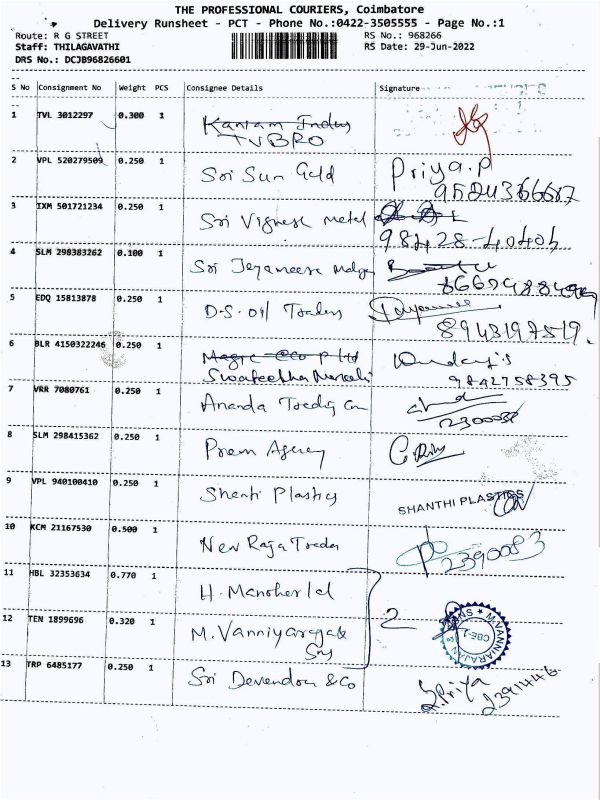 THE PROFESSIONAL COURIERS, Coimbatore
Delivery Runsheet - PCT - Phone No.:0422-3505555 - Page No.:1
Route: R G STREET
RS No.: 968266
Staff: THILAGAVATHI
RS Date: 29-Jun-2022
DRS No.: DCJB96826601
S No Consignment No Weight PCS Consignee Details Signature
1 TVL 3012297 0.300 1
TVBRO
2 VPL 520279509 0.250 1 Sri Sun Gold Priya.P
3 IXM 501721234 0.250 1 Sri Vignesh metal
98428-40404
4 SLM 298383262 0.100 1 Sri
5 EDQ 15813878 0.250 1 D.S. Oil Traders
8943197519.
6 BLR 4150322246 0.250 1
9842758395
7 VRR 7080761 0.250 1 Ananda Trading
8 SLM 298415362 0.250 1 Prem Agency
9 VPL 940100410 0.250 1 Shanti Plastics SHANTHI PLASTICS
10 KCM 21167530 0.500 1 New Raja Traders 2390083
11 HBL 32353634 0.770 1 H. Manoherlal
12 TEN 1899696 0.320 1 M. Vanniyarajan 2 M.VANNIARAJAN & SONS CBE-1
Sons
13 TRP 6485177 0.250 1 Sri Devendra & Co S.Priya
2391446